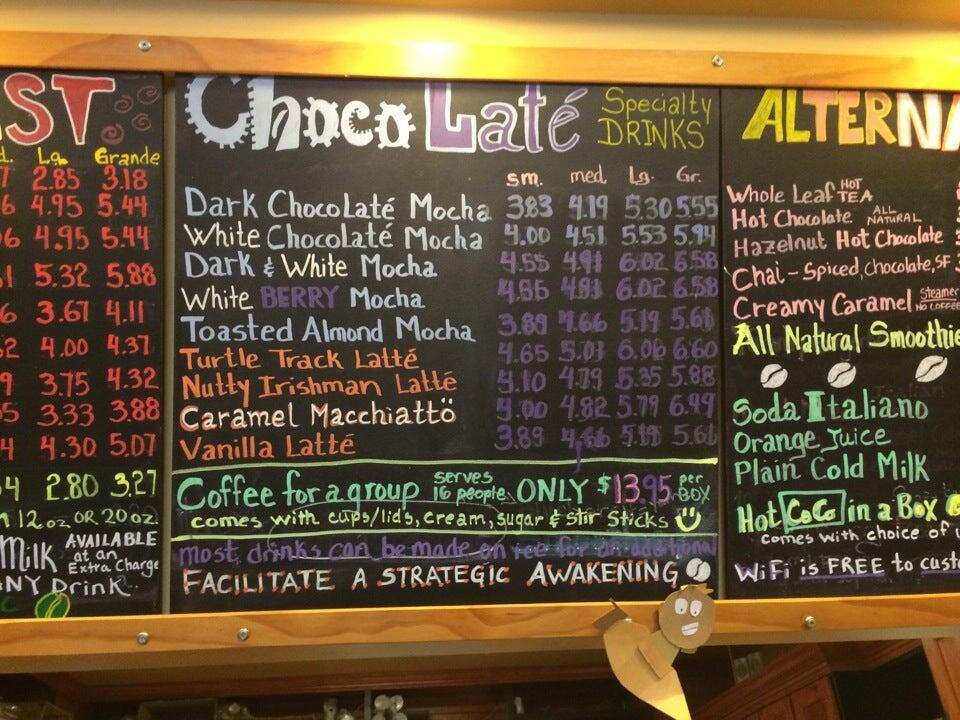 ST
Lg. Grande
2.85 3.18
4.95 5.44
4.95 5.44
5.32 5.88
3.67 4.11
4.00 4.37
3.75 4.32
3.33 3.88
4.30 5.07
2.80 3.27
12oz OR 20oz.
Milk AVAILABLE
at an
Extra Charge
NY Drink.
ChocoLaté Specialty
DRINKS
sm. med. Lg. Gr.
Dark ChocoLaté Mocha 3.83 4.19 5.30 5.55
White Chocolaté Mocha 4.00 4.51 5.53 5.94
Dark & White Mocha 4.55 4.91 6.02 6.58
White BERRY Mocha 4.55 4.91 6.02 6.58
Toasted Almond Mocha 3.89 4.66 5.19 5.61
Turtle Track Latté 4.65 5.01 6.06 6.60
Nutty Irishman Latté 4.10 4.79 5.35 5.88
Caramel Macchiattö 4.00 4.82 5.79 6.49
Vanilla Latté 3.89 4.66 5.19 5.61
Coffee for a group serves
16 people ONLY $13.95 per
BOX
comes with cups/lids, cream, sugar & stir sticks
most drinks can be made on ice for an additional
FACILITATE A STRATEGIC AWAKENING
ALTERNA
Whole Leaf HOT
TEA
Hot Chocolate ALL
NATURAL
Hazelnut Hot Chocolate
Chai-Spiced, Chocolate, SF
Creamy Caramel Steamer
NO COFFEE
All Natural Smoothie
Soda Italiano
Orange Juice
Plain Cold Milk
Hot CoCo in a Box
comes with choice of
WiFi is FREE to custo